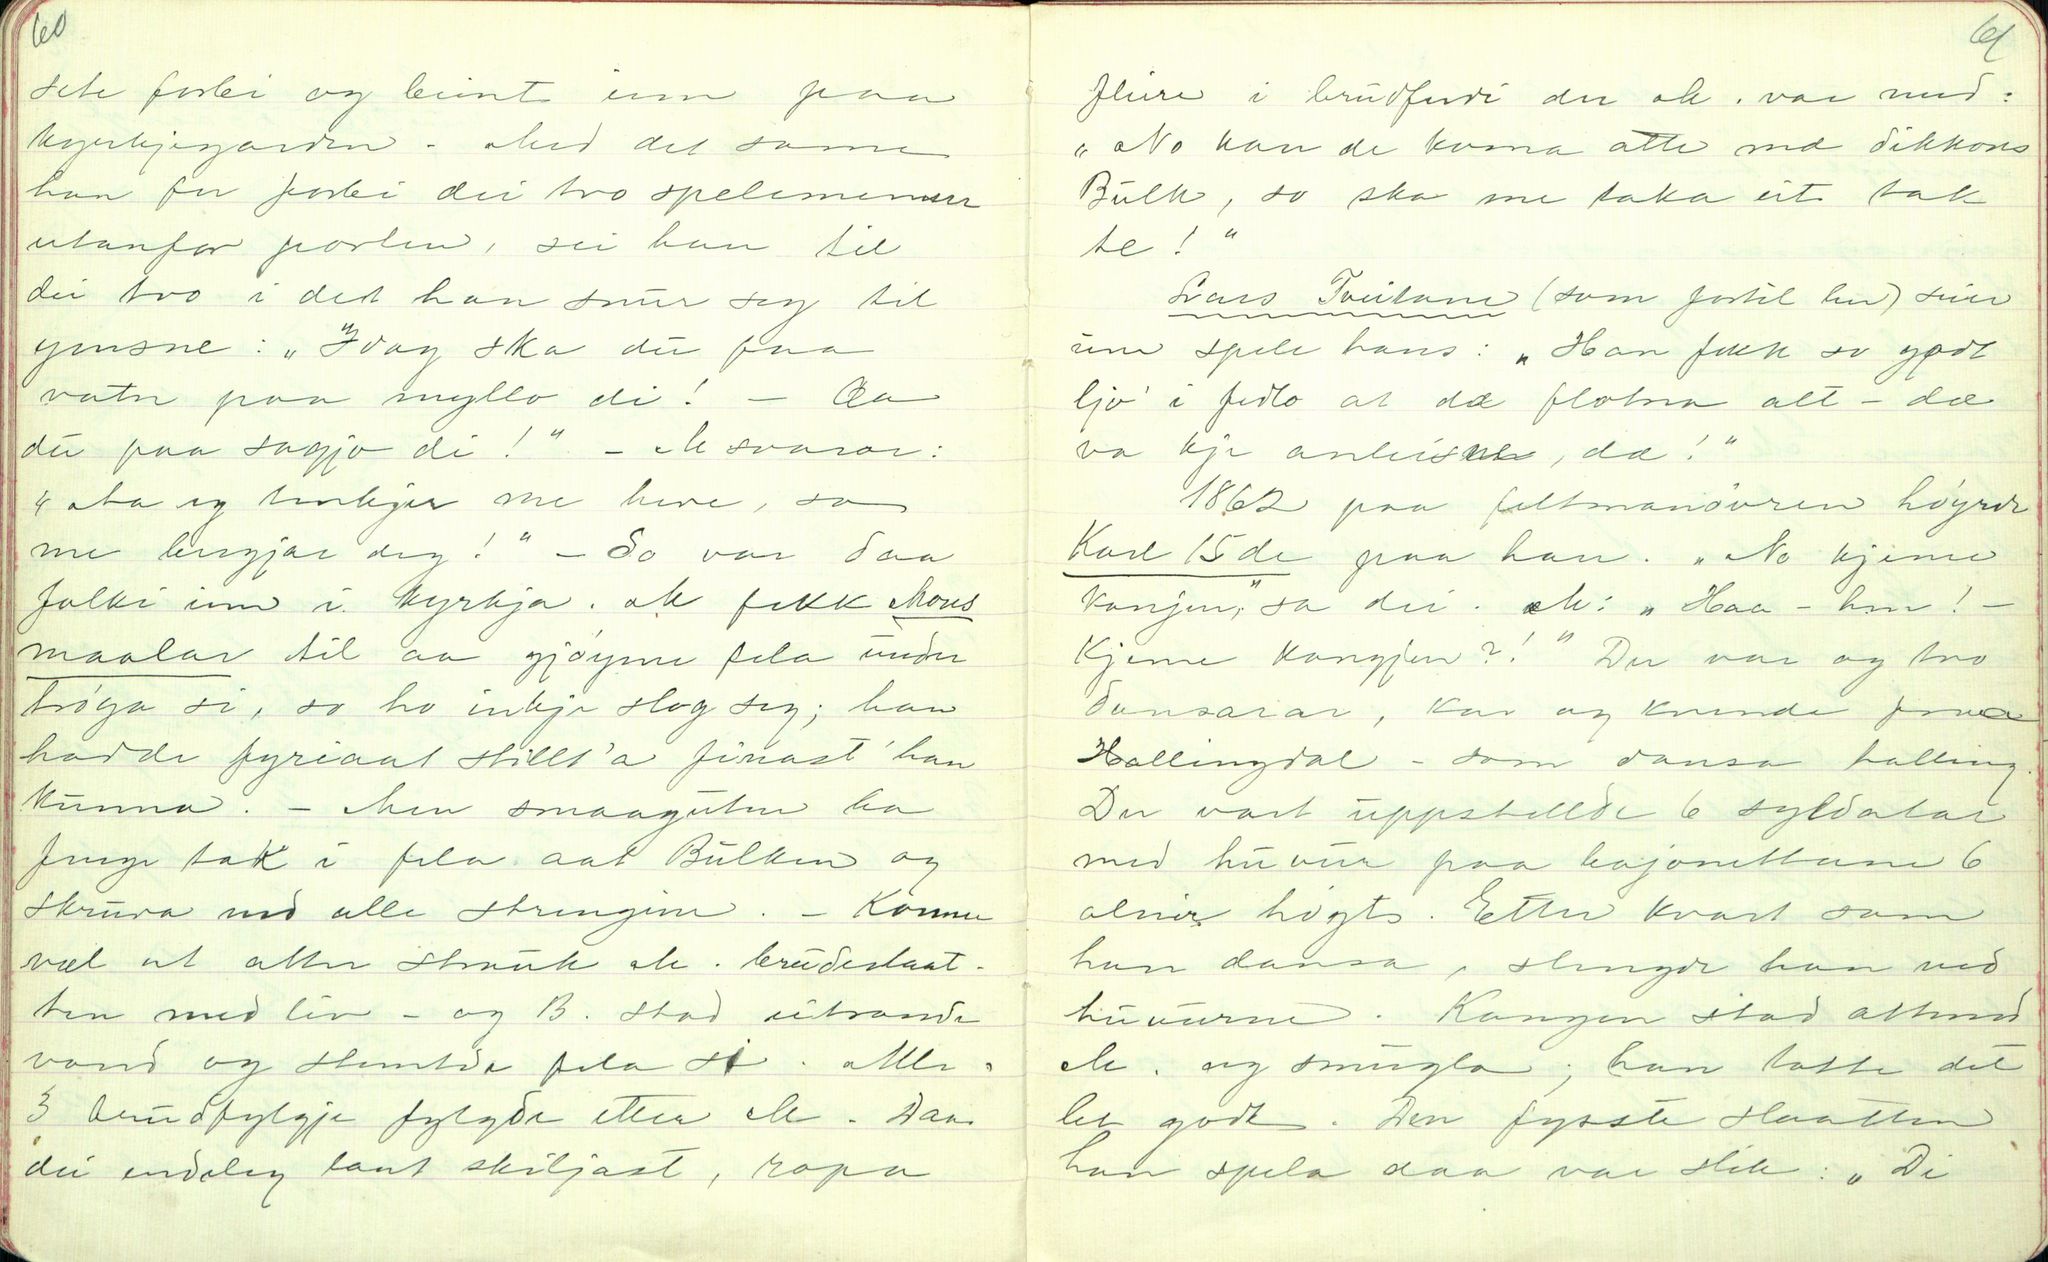 60
sete forbi og beint inn paa
kyrkjegarden. Med det same
han for forbi dei tvo spelemennerr
utanfor porten, sei han til
dei tvo i det han snur seg til
ymsne: „Idag ska du faa
vatn paa myllo di! – Aa
du paa sagjo di!" – M svarar:
„Aa eg tenkjer me bere, so
me bergjar deg!" – So var daa
folki inn i kyrkja. M fekk Mons
maalar til aa gjøyme fela under
trøya si, so ho inkje slog seg; han
hadde fyriaat stillt'a finast han
kunna. – Men smaaguten ha
fenge tak i fela aat Bulken og
skruva ned alle strengine. – Komne
vel ut atter strauk M. brudeslaat-
ten med liv – og B. stod
vond og stemde fela si. Alle
3 brudfylgje fylgde etter M. Daa
dei endeleg laut skiljast, ropa
61
fleire i brudferdi der M. var med:
„No kan de koma atte mæ dikkons
Bulk, so ska me taka eit tak
te!"
Lars Tveitane (som fortel her) seier
um spele hans: „Han fekk so godt
ljo' i fedlo at dæ flotna alt – dæ
va kje anleisne, dæ!"
1862 paa feltmanøvren høyrde
Karl 15de paa han. „No kjeme
kongjen," sa dei. M: „Haa – hm! –
Kjeme kongjen?!" Der var og tvo
dansarar, kar og kvende fraa
Hallingdal – som dansa halling.
Der vart uppstellde 6 syldatar
med huvur paa bajonettane 6
alner høgt. Etter kvart som
han dansa, slengde han ned
huvurne. Kongen stod attmed
M. og smugla; han totte det
let godt. Den fysste slaatten
han spela daa var slik: „Di